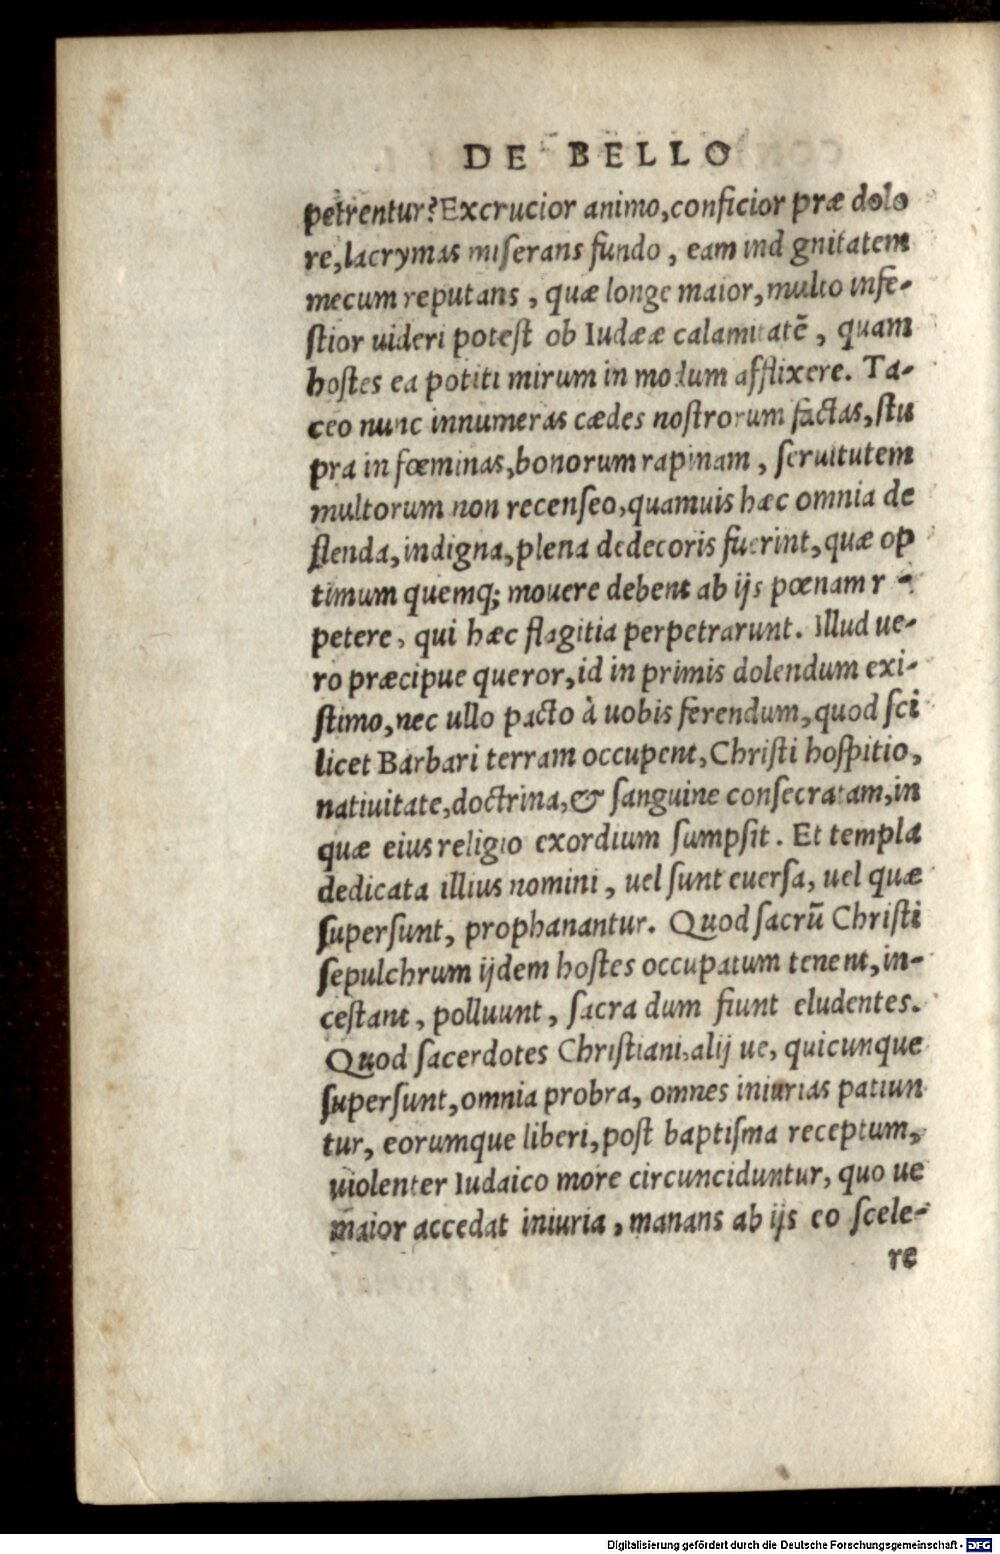 DE BELLO
petrentur? Excrucior animo, conficior præ dolo
re, lacrymas miserans fundo, eam ind gnitatem
mecum reputans, quæ longe maior, multo infe-
stior uideri potest ob Iudææ calamitatē, quam
hostes ea potiti mirum in modum afflixere. Ta-
ceo nunc innumeras cædes nostrorum factas, stu
pra in fœminas, bonorum rapinam, seruitutem
multorum non recenseo, quamuis hæc omnia de
flenda, indigna, plena dedecoris fuerint, quæ op
timum quemq; mouere debent ab ijs pœnam r -
petere, qui hæc flagitia perpetrarunt. Illud ue-
ro præcipue queror, id in primis dolendum exi-
stimo, nec ullo pacto à uobis ferendum, quod sci
licet Barbari terram occupent, Christi hospitio,
natiuitate, doctrina, & sanguine consecratam, in
quæ eius religio exordium sumpsit. Et templa
dedicata illius nomini, uel sunt euersa, uel quæ
supersunt, prophanantur. Quod sacrū Christi
sepulchrum ijdem hostes occupatum tenent, in-
cestant, polluunt, sacra dum fiunt eludentes.
Quod sacerdotes Christiani, alij ue, quicunque
supersunt, omnia probra, omnes iniurias patiun
tur, eorumque liberi, post baptisma receptum,
uiolenter Iudaico more circunciduntur, quo ue
maior accedat iniuria, manans ab ijs eo scele-
re
Digitalisierung gefördert durch die Deutsche Forschungsgemeinschaft - DFG